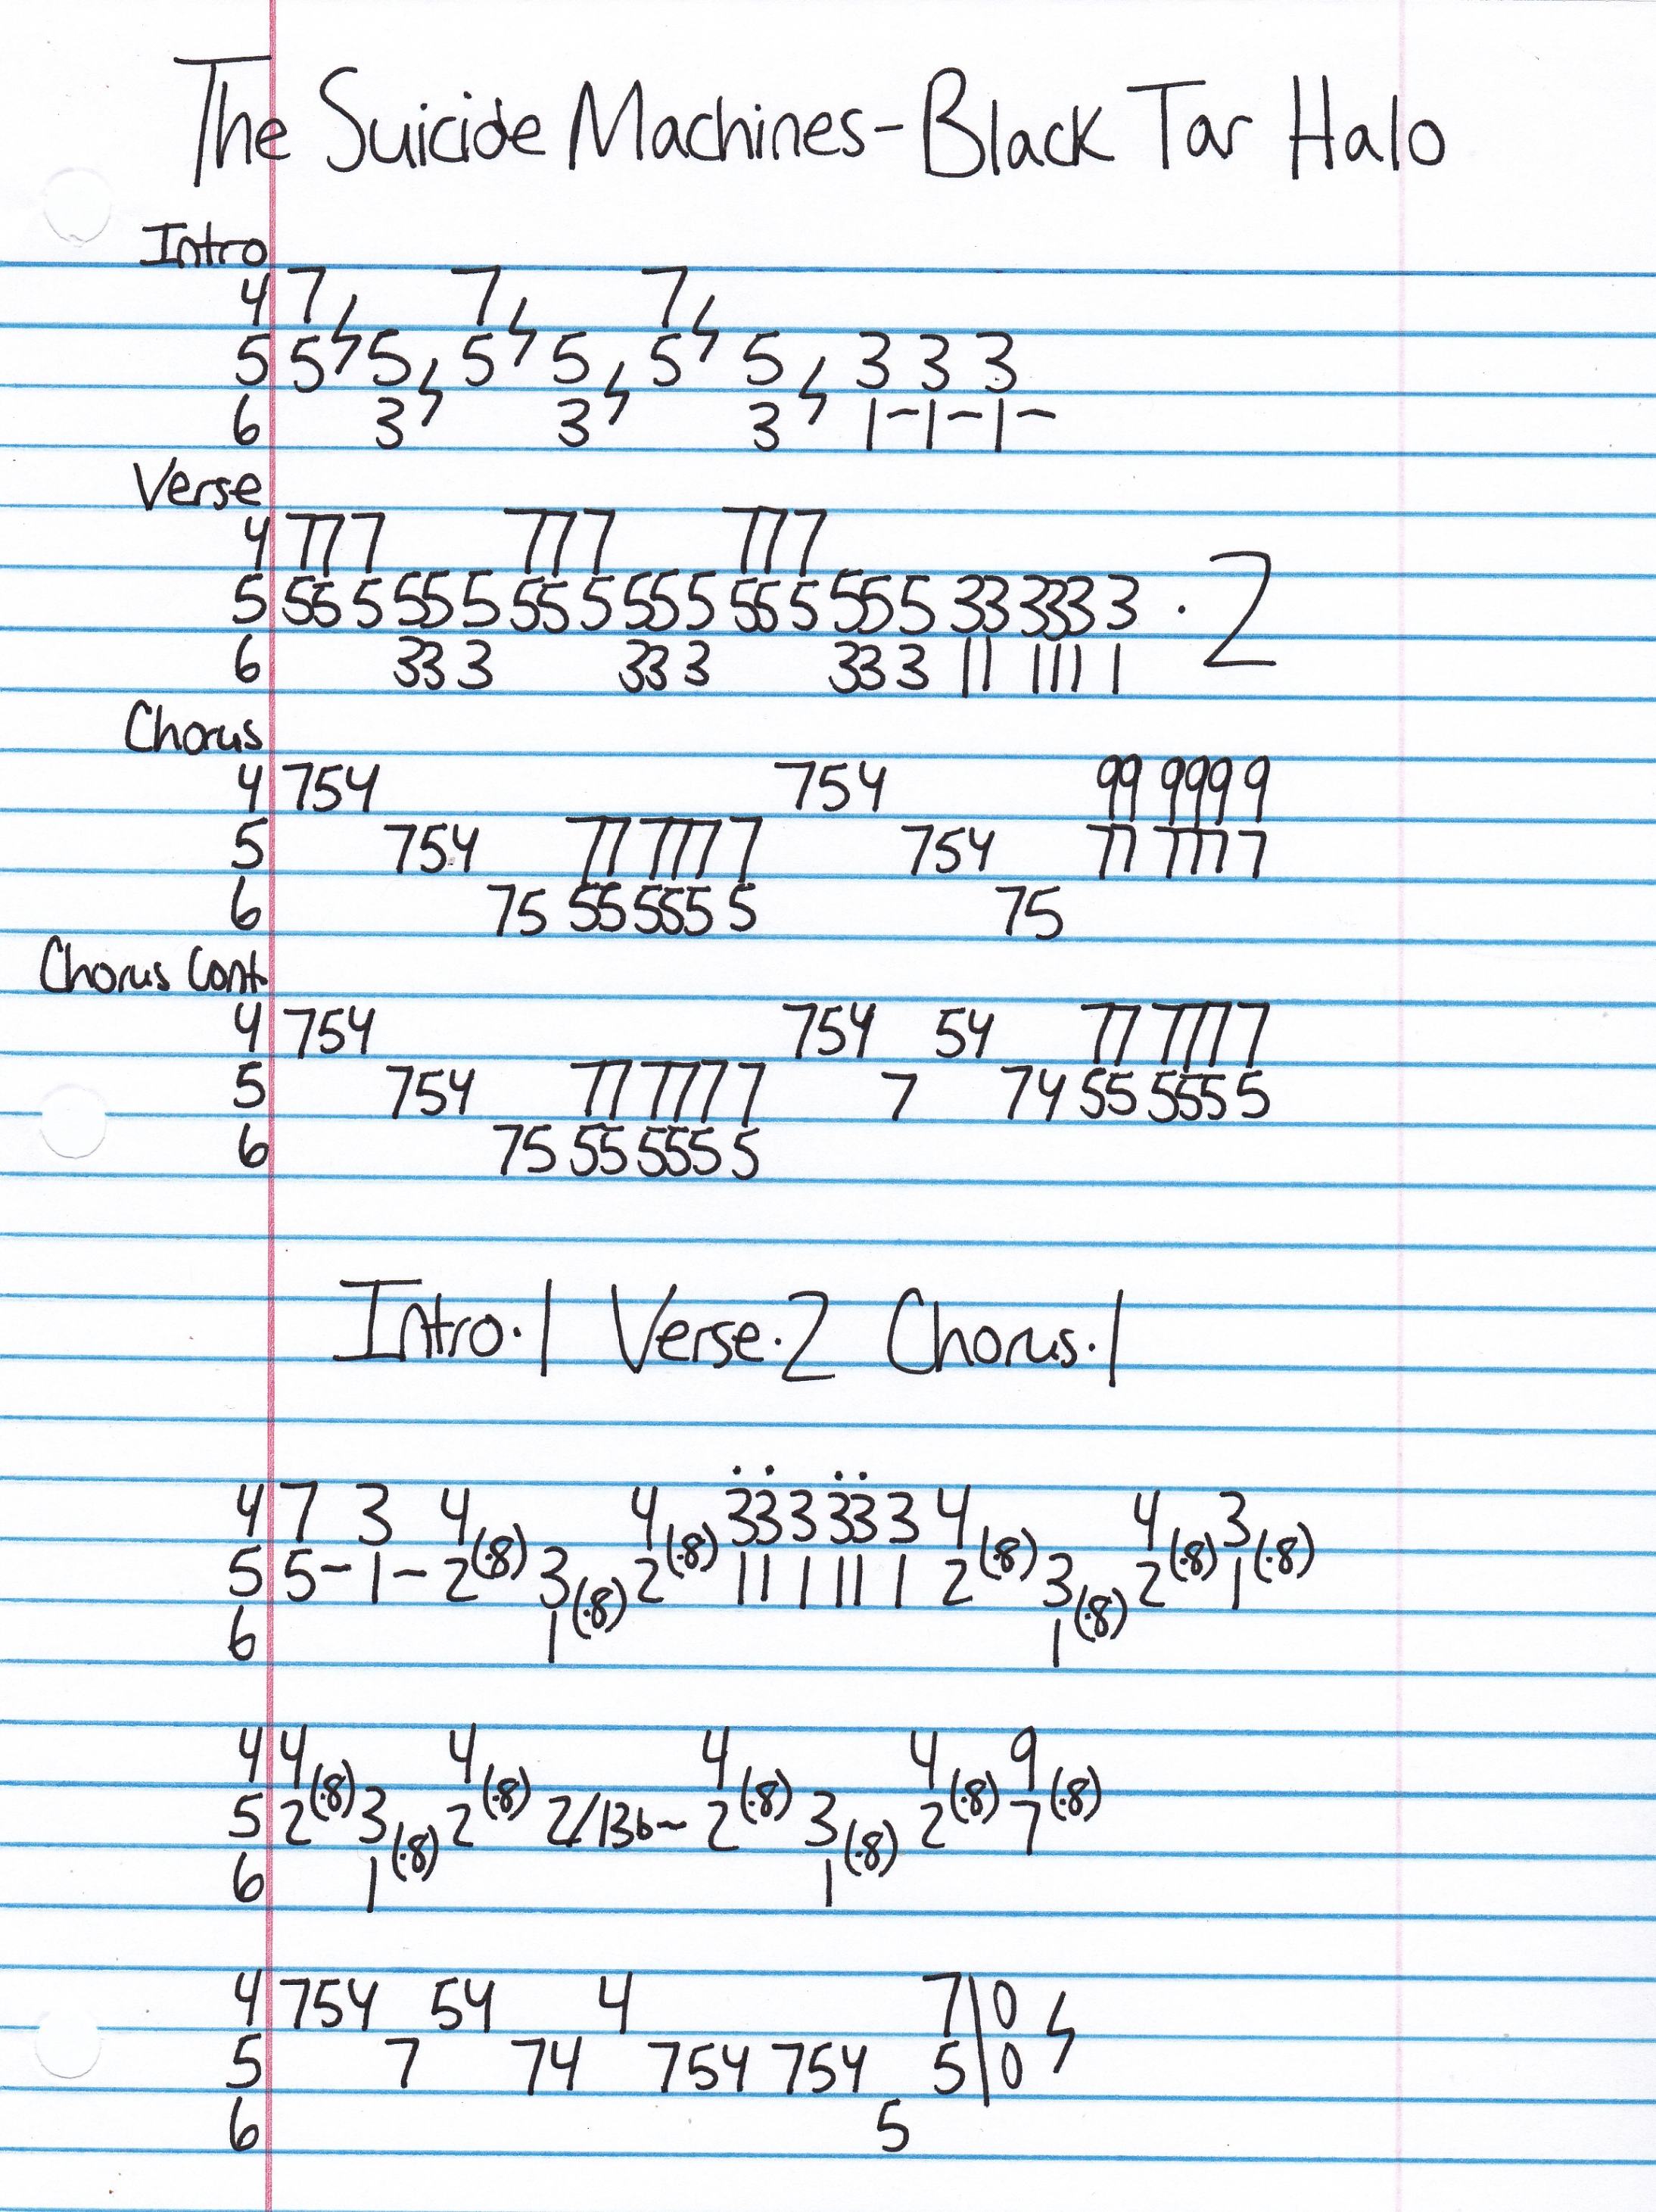 The Suicide Machines-Black Tar Halo
Intro
4 7 7 7
5 5 5 5 5 5 5 3 3 3
6 3 3 3 1~1~1~
Verse
4 777 777 777
5 555 555 555 555 555 555 33 333 3 · 2
6 33 3 33 3 33 3 11 111 1
Chorus
4 754 754 99 999 9
5 754 77 777 7 754 77 777 7
6 75 55 555 5 75
Chorus Cont.
4 754 754 54 77 777 7
5 754 77 777 7 7 74 55 555 5
6 75 55 555 5
Intro·1 Verse·2 Chorus·1
4 7 3 4 4 33 3 33 3 4 4 3
5 5~ 1~ 2(·8) 3 2(·8) 11 1 11 1 2(·8) 3 2(·8) 1(·8)
6 1(·8) 1(·8)
4 4 4 4 4 9
5 2(·8) 3 2(·8) 2/13b~ 2(·8) 3 2(·8) 7(·8)
6 1(·8) 1(·8)
4 754 54 4 7\0
5 7 74 754 754 5\0
6 5